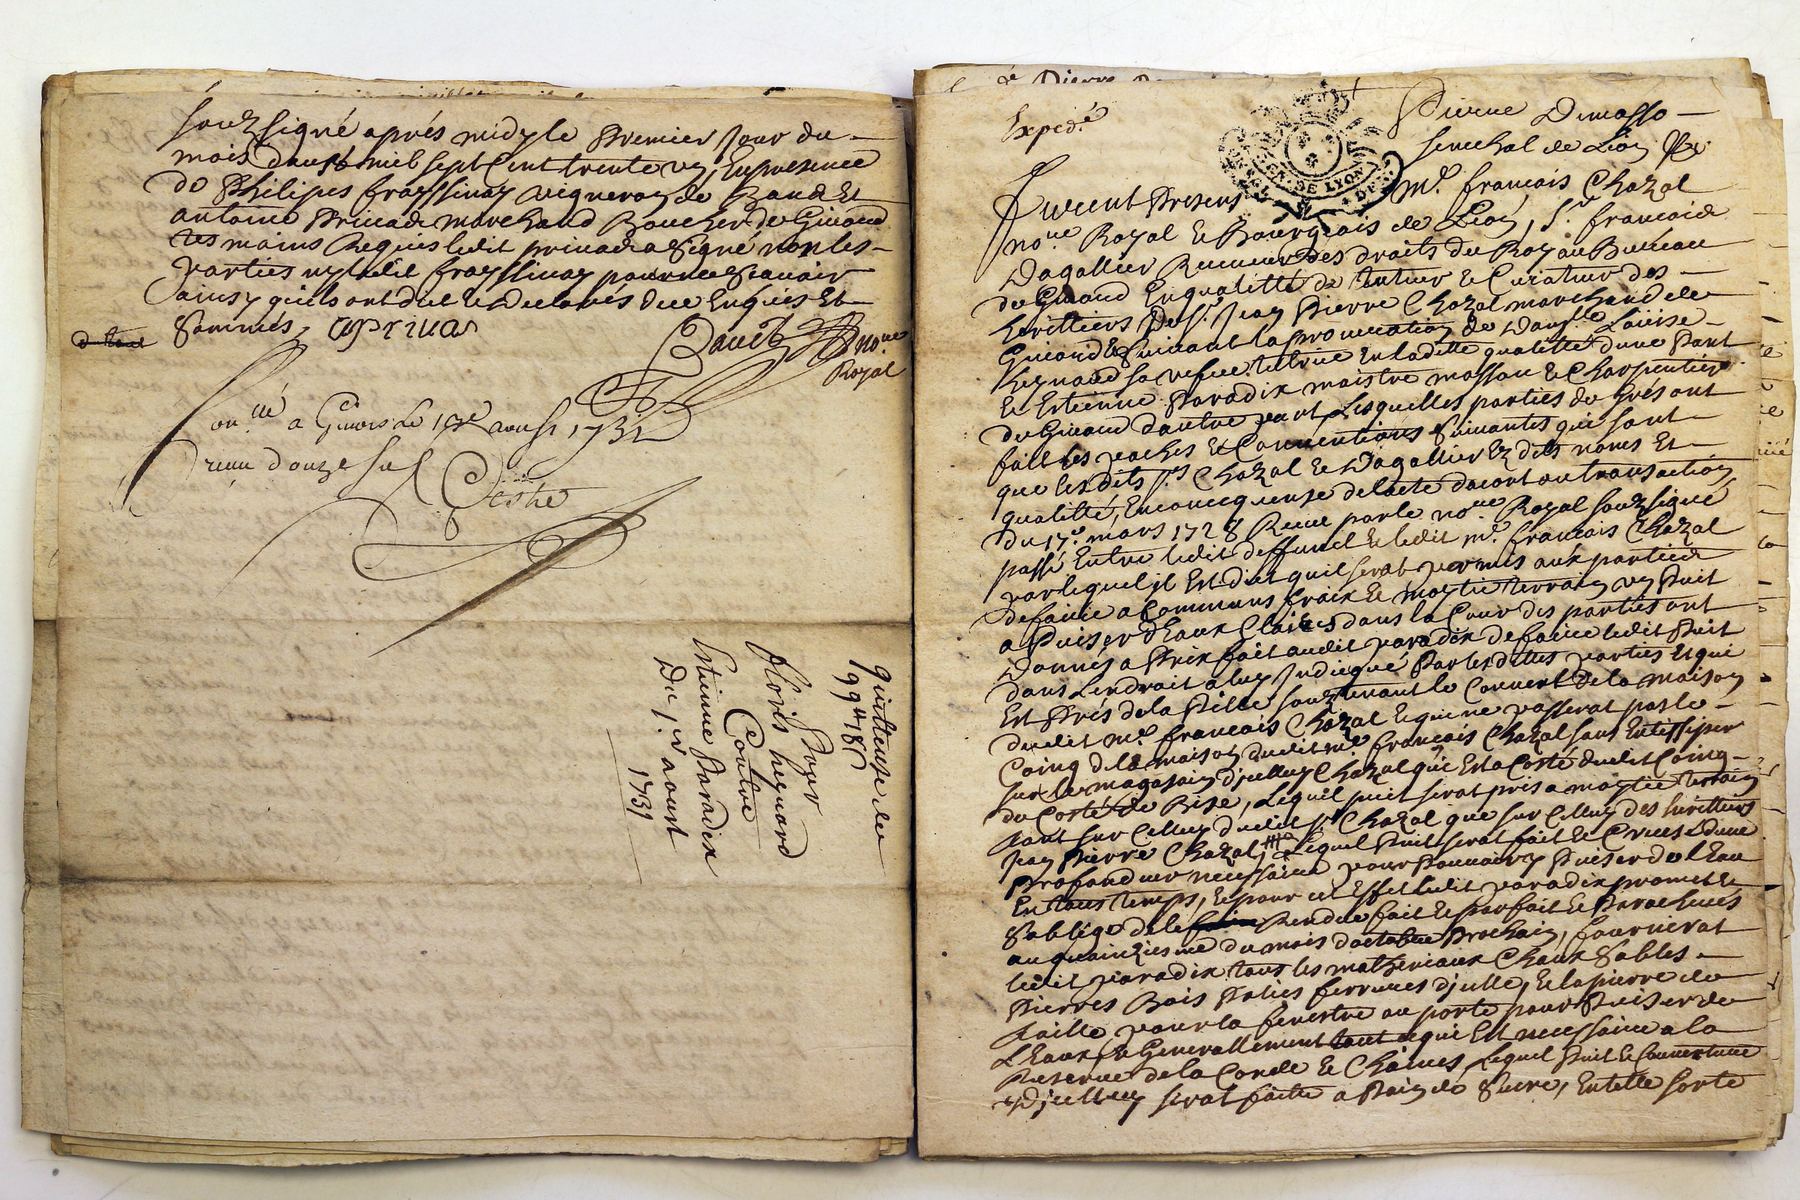 soubz signé aprés midy le Premier Jour du
mois daust mil sept Cent trente un, En presence
de Philipes frayssinay vigneron de Et
antoine Privade marchand Boucher de Givord
tesmoins Requis ledit privade a signé non les
parties ny ledit frayssinay pour ne sçavoir
ainsy quils ont dit et declarés de ce Enquis Et
Sommés, aprivas
no.re
Royal
Con.llé a Givors Le aoust 1731
receu douze sols
quittence de
99ᵗᵗ 18ˢ
Pour
heynard
Contre
Estienne Paradix
Du 1.er aoust
1731
Expedé
Pierre Dumasso
senechal de Lion
GEN. DE LYON
furent Presens M.e francois Chazal
no.re Royal & Bourgeois de Lion, S.r francois
Dagallier Receveur des droits du Roy au Bureau
de Givord En qualitté de tuteur & Curateur des
heritiers De S.r Jean Pierre Chazal marchand de
Givord & suivant la procuration de Dam.lle Louise
heynard sa vefve tutrice En ladite qualitté dune Part
& Estienne Paradix maistre masson & Charpentier
de Givord dautre part Lesquelles parties de Gré ont
fait les paches & Conventions suivantes qui sont
que lesdits s.rs Chazal & Dagallier Ez dits noms Et
qualitté, En consequense de lacte dacort ou transaction
du 17.e mars 1728 Receu par le no.re Royal soubzsigné
passé Entre ledit deffunct & ledit m.e francois Chazal
par lequel il Est dict quil serat permis aux parties
de faire a Communs fraix & moytié terrain un Puit
a Puiser d'Eaux Claires dans la Cour des parties ont
Donnés a Prix fait audit paradix de faire ledit Puit
dans Lendroit a luy Indiqué Par les dittes parties Et qui
Est Prés de la Pille soubztenant le Couvert de la maison
dudit m.e francois Chazal & qui ne passerat pas le
Coing de la maison dudit m.e francois Chazal sans Entissiper
sur le magasain dicelluy Chazal qui Est a Costé dudit Coing
du Costé de Bize, Lequel puit serat pris a moytié terrain
tant sur Celluy dudit s.r Chazal que sur Celluy des heritiers
Jean Pierre Chazal, Lequel Puit serat fait & Creusé dune
Profondeur necessaire pour Pouvoir y Puiser de lEau
En tous temps, & pour cet Effet ledit paradix promet &
soblige de le Rendre fait & parfait & Parachevé
au quinziesme du mois doctobre Prochain, fournirat
ledit paradix tous les matheriaux Chaux Sables
Pierres Bois Polies ferrures dicelle, & la pierre de
taille pour la fenestre ou porte pour Puiser de
L'Eaux, & Generallement tout ce qui Est necessaire a la
Reserve de la Corde & Chaines Lequel Puit & Couverture
dicelluy serat faitte a Pain de Sucre, En telle sorte